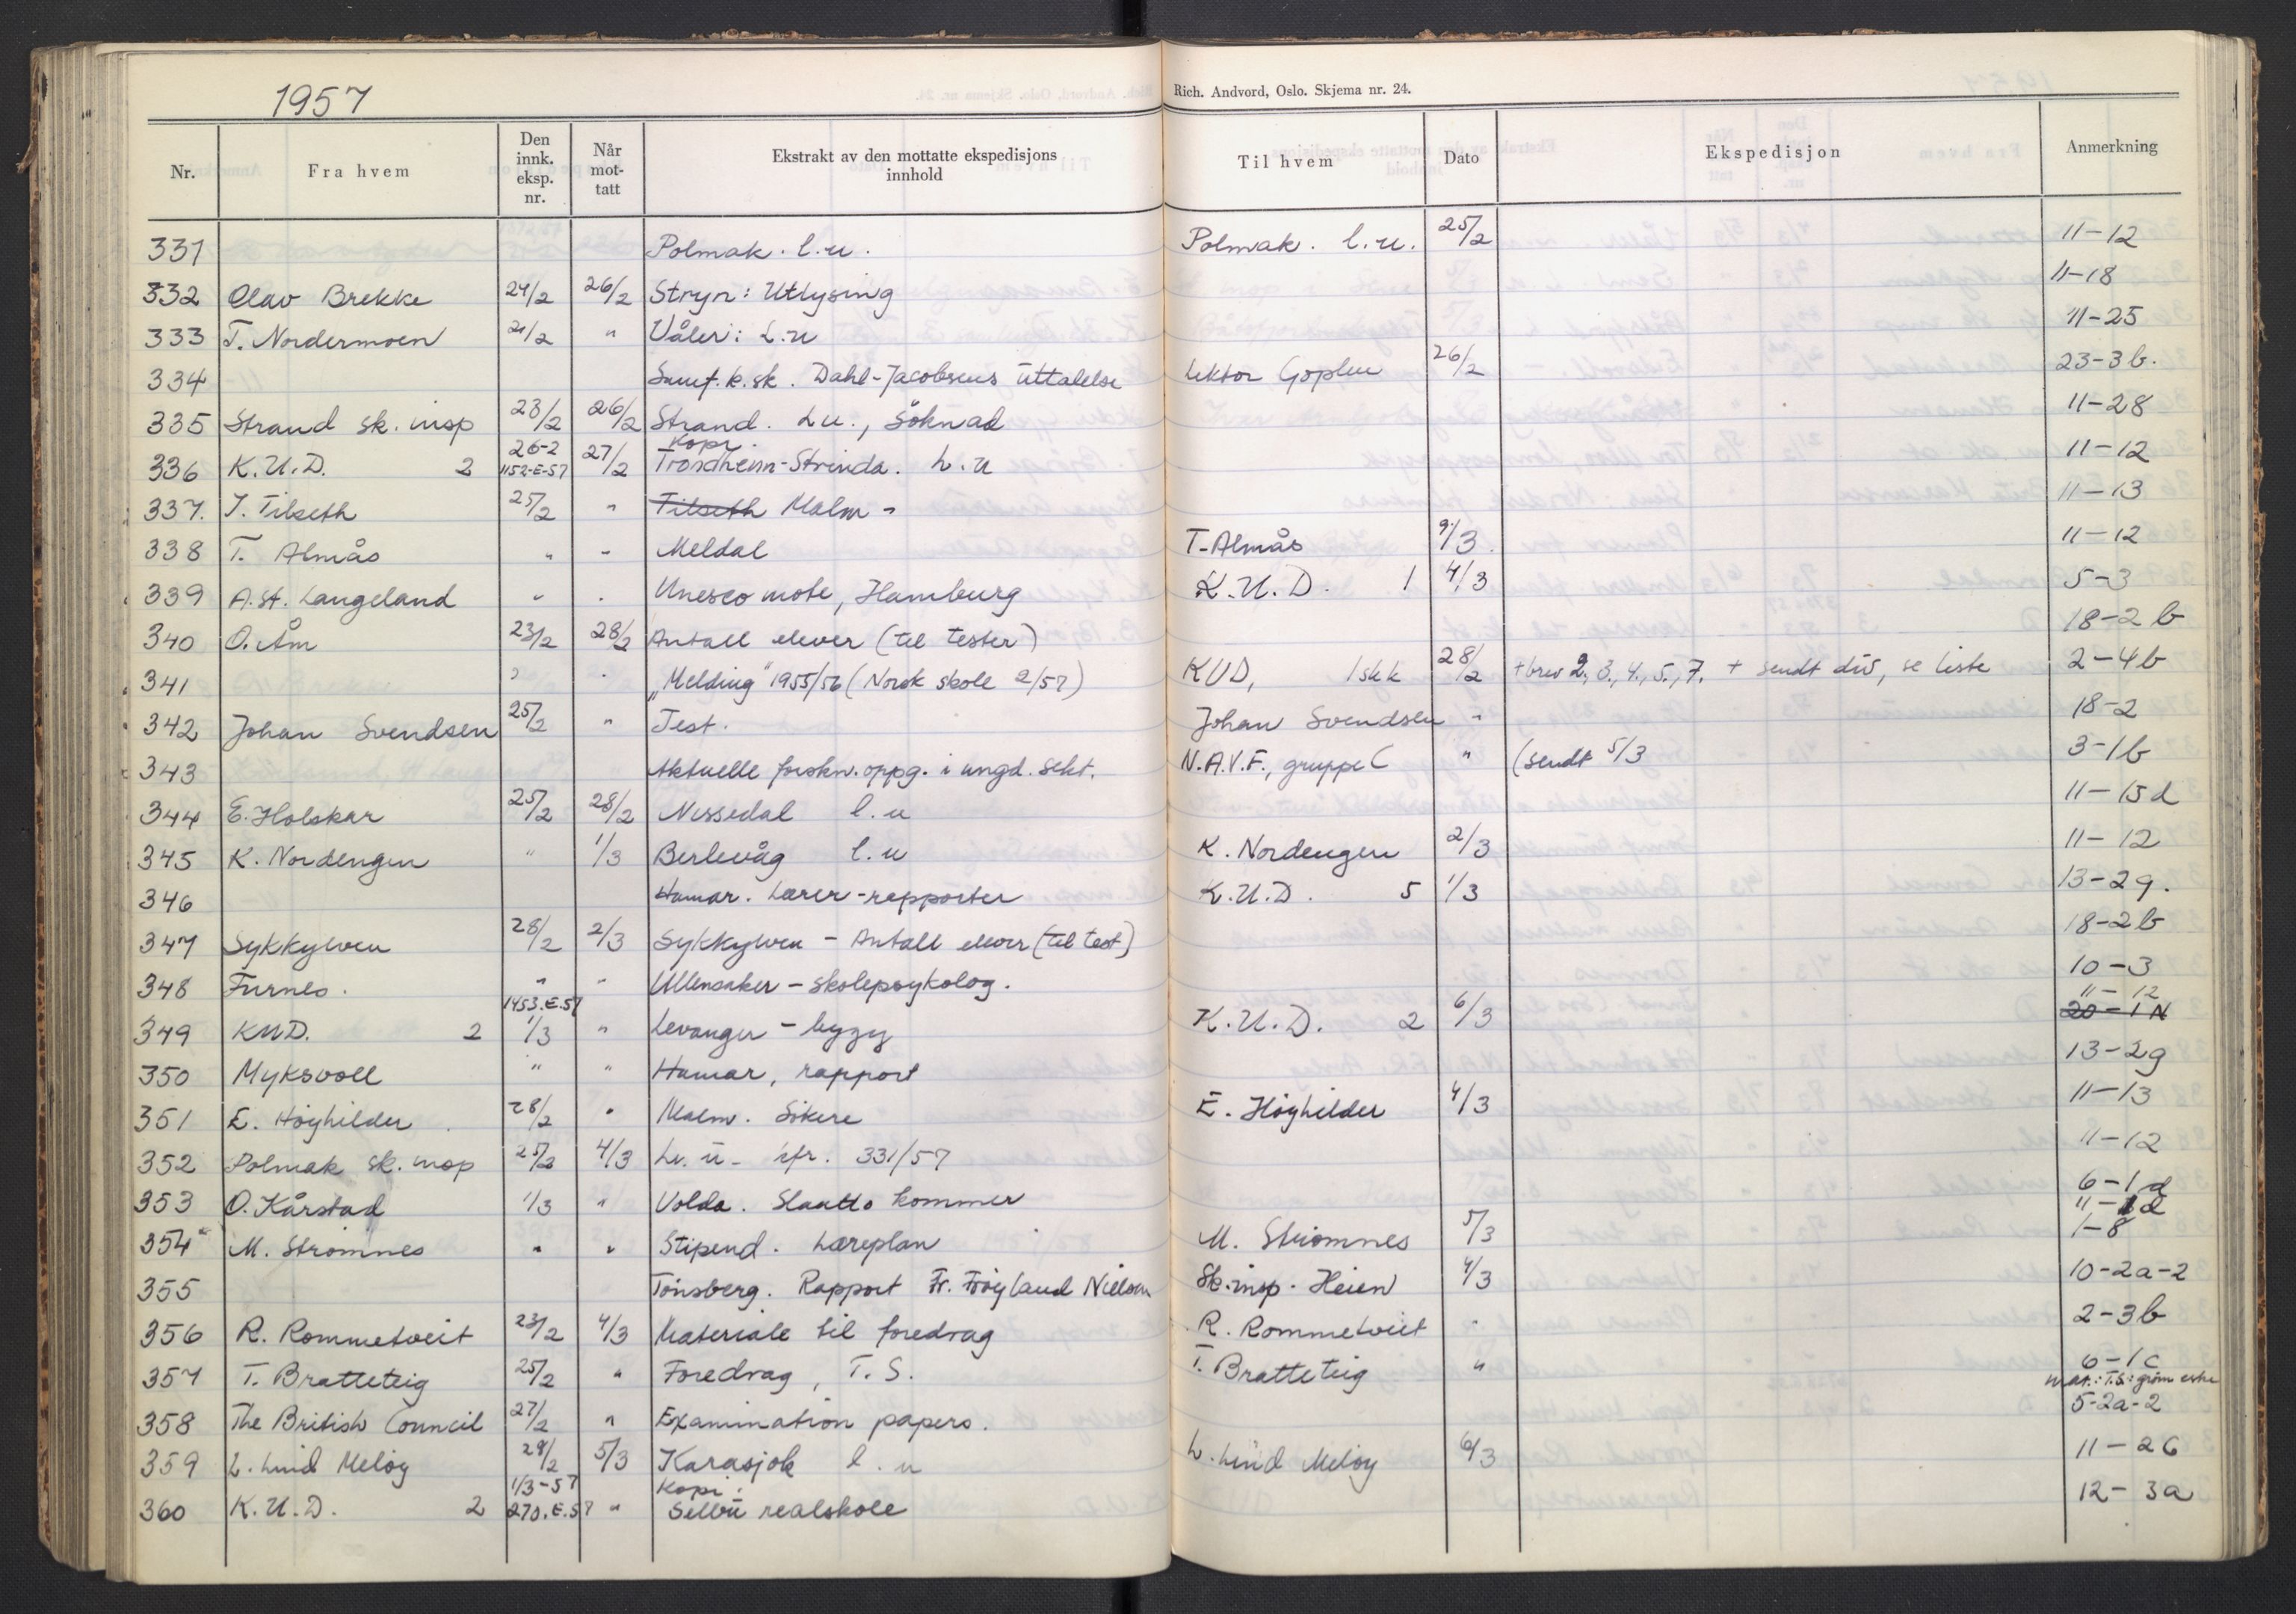 1957
Rich. Andvord, Oslo. Skjema nr. 24.
Nr. Fra hvem Den innk. eksp. nr. Når mot-tatt Ekstrakt av den mottatte ekspedisjons innhold Til hvem Dato Ekspedisjon Anmerkning
331 Polmak. l.u. Polmak. l.u. 25/2 11-12
332 Olav Brekke 24/2 26/2 Stryn: Utlysing 11-18
333 T. Nordermoen 21/2 " Våler: L.u 11-25
334 Samf.k.sk. Dahl-Jacobsens uttalelse lektor Goplen 26/2 23-3b.
335 Strand sk. insp 23/2 26/2 Strand. Lu., Søknad 11-28
336 K.U.D. 2 26-2 1152-E-57 27/2 Kopi. Trondheim-Strinda. L.u 11-12
337. J. Tilseth 25/2 " Tilseth Malm - 11-13
338 T. Almås " - Meldal T. Almås 9/3. 11-12
339 A.St. Langeland " . Unesco møte, Hamburg K.U.D. 1 4/3 5-3
340 O. Åm 23/2 28/2 Antall elever (til tester) 18-2b
341 " . "Melding" 1955/56 (Norsk skole 2/57) KUD, 1 skk 28/2 + brev 2, 3., 4., 5., 7. + sendt div, se liste 2-4b
342 Johan Svendsen 25/2 " Test. Johan Svendsen " 18-2
343 Aktuelle forskn.oppg. i ungd. sekt. N.A.V.F., gruppe C " (sendt 5/3 3-1b
344 E. Holskar 25/2 28/2 Nissedal l.u 11-15d
345 K. Nordengen " 1/3 Berlevåg l.u K. Nordengen 2/3 11-12
346 Hamar. Lærer-rapporter K.U.D. 5 1/3 13-2g.
347 Sykkylven 28/2 2/3 Sykkylven - Antall elever (til test) 18-2b
348 Furnes. " " Ullensaker - skolepsykolog. 10-3
349 KUD. 2 1453.E.57 1/3 " Levanger - bygg K.U.D. 2 6/3 11-12 20-1N
350 Myksvoll " " Hamar, rapport 13-2g
351 E. Høyhilder. 28/2 " Malm. Søkere E. Høyhilder 4/3 11-13
352 Polmak sk. insp 25/2 4/3 L. u - jfr. 331/57 11-12
353 O. Kårstad 1/3 " Volda. Slaatto kommer 6-1d 11-1d
354 M. Strømnes " " Stipend. Læreplan M. Strømnes 5/3 1-8
355 Tønsberg. Rapport Fr. Frøyland Nielsen Sk.insp. Heien 4/3 10-2a-2
356 R. Rommetveit 23/2 4/3 Materiale til foredrag R. Rommetveit " 2-3b
357 T. Bratteteig 25/2 " Foredrag, T.S. T. Bratteteig " 6-1c mat.: T.S.: grøn eske
358 The British Council 27/2 " Examination papers. 5-2a-2
359 L. Lind Meløy 28/2 5/3 Karasjok l.u L. Lind Meløy 6/3 11-26
360 K.U.D. 2 1/3-57 270.E.57 " Kopi: Selbu realskole 12-3a